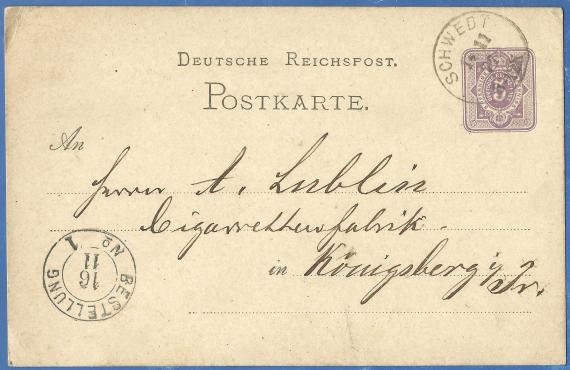 DEUTSCHE REICHSPOST.
POSTKARTE.
SCHWEDT
11
5
An
Herrn A. Lublin
Cigarrettenfabrik.
in Königsberg i/Pr.
BESTELLUNG
No 1
16
11